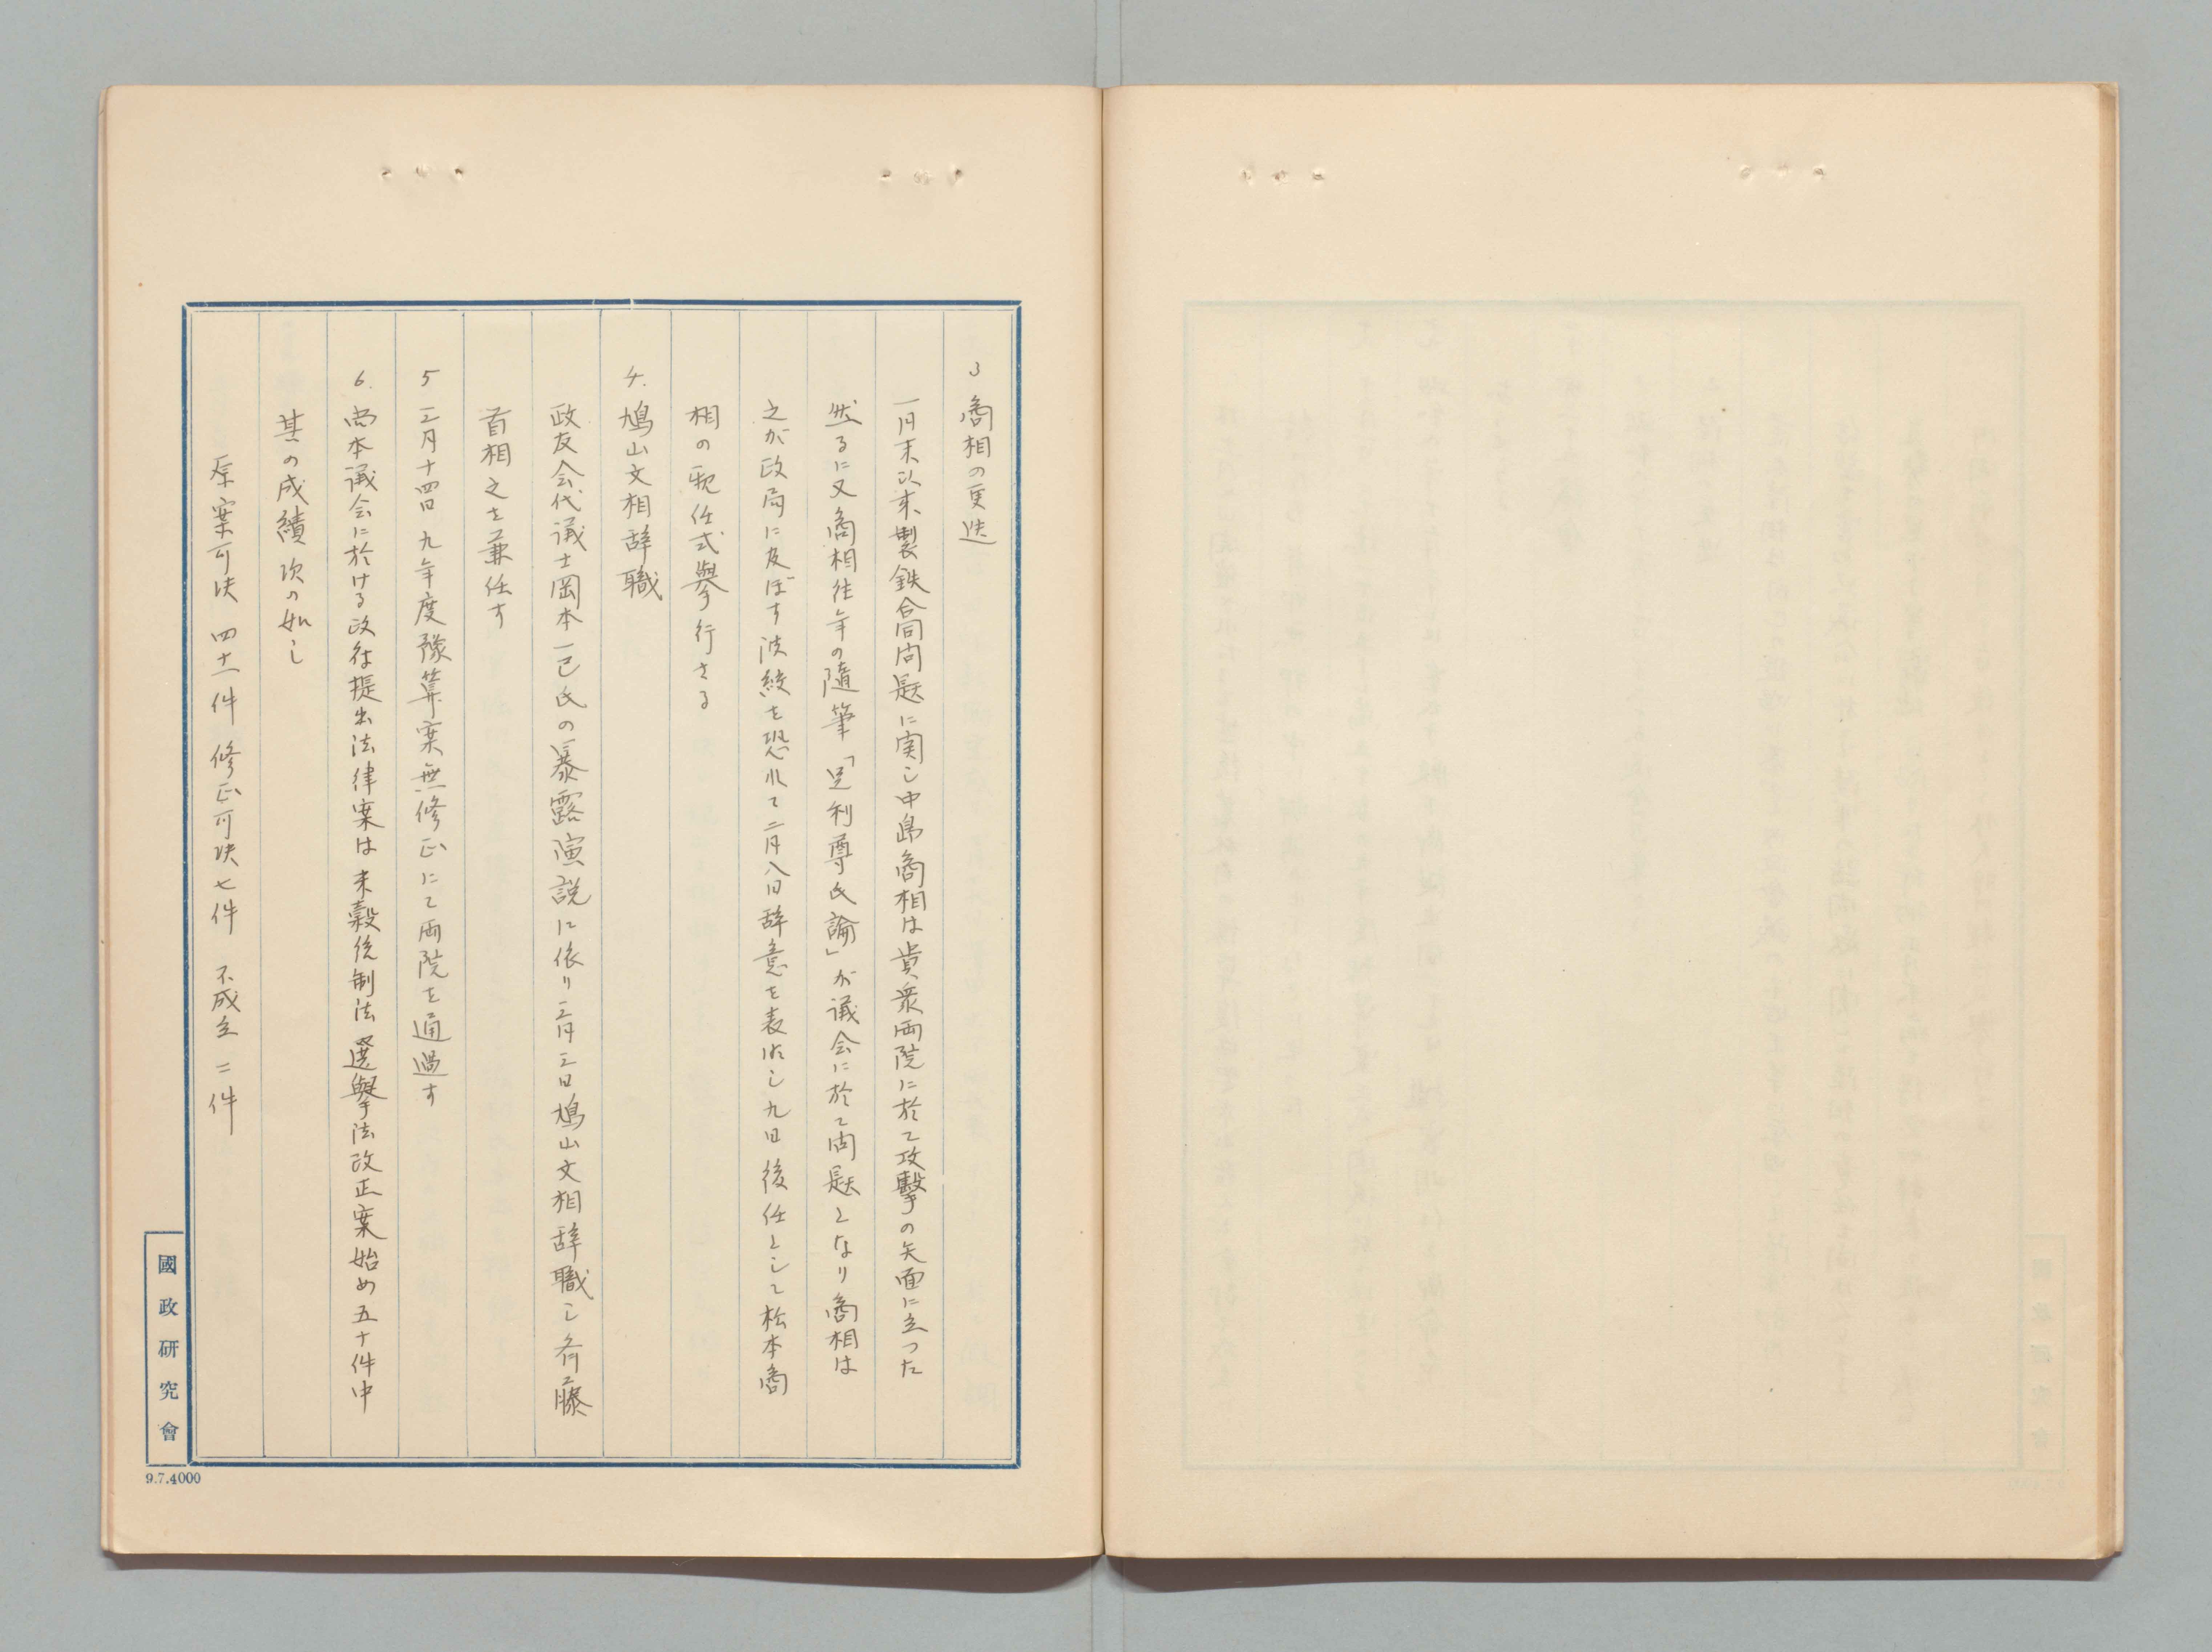 3 商相の更迭
一月末以来製鉄合同問題に関し中島商相は貴衆両院に於て攻撃の矢面に立った
然るに又商相往年の隨筆「足利尊氏論」が議会に於て問題となり商相は
之が政局に及ぼす波紋を恐れて二月八日辞意を表明し九日後任として松本商
相の親任式擧行さる
4. 鳩山文相辞職
政友会代議士岡本一己氏の暴露演説に依り三月三日鳩山文相辞職し斉藤
首相之を兼任す
5 三月十四日九年度豫算案無修正にて両院を通過す
6. 尚本議会に於ける政府提出法律案は米穀統制法選擧法改正案始め五十件中
其の成績次の如し
原案可決 四十一件 修正可決七件 不成立二件
國政研究會
9.7.4000